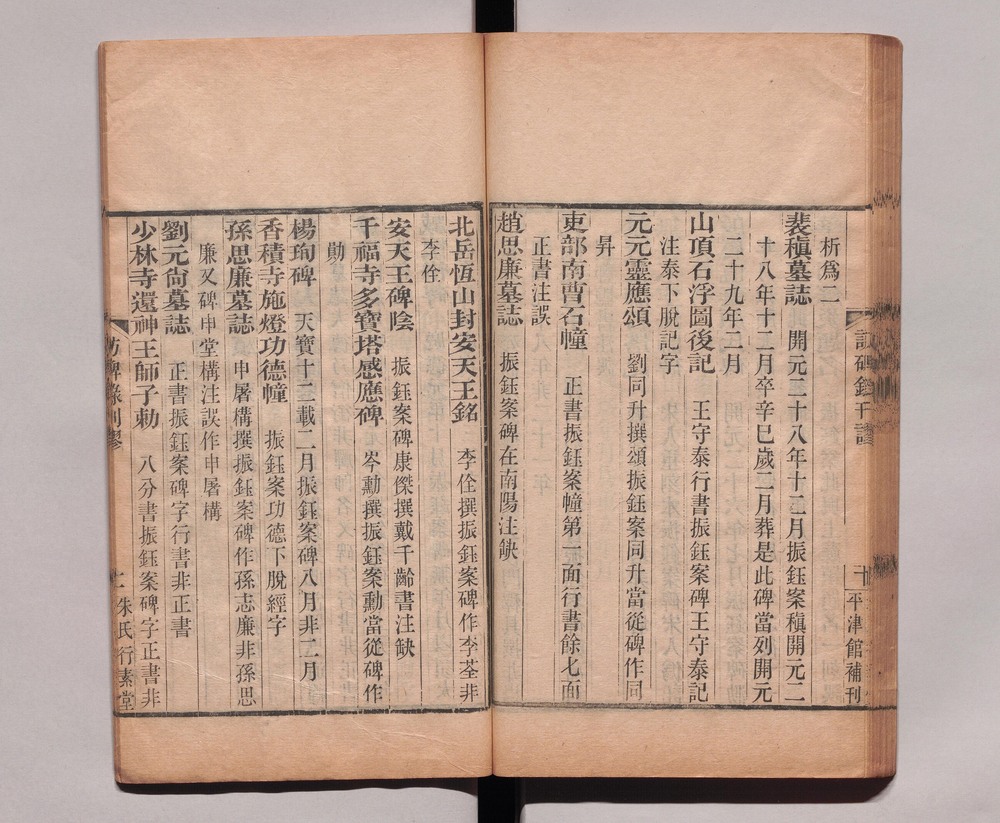 析爲二
裴稹墓誌 開元二十八年十二月振鈺案稹開元二
十八年十二月卒辛巳歲二月葬是此碑當列開元
二十九年二月
山頂石浮圖後記 王守泰行書振鈺案碑王守泰記
注泰下脫記字
元元靈應頌 劉同升撰頌振鈺案同升當從碑作同
昇
吏部南曹石幢 正書振鈺案幢第一面行書餘七面
正書注誤
趙思廉墓誌 振鈺案碑在南陽注缺
平津館補刊
北岳恆山封安天王銘 李佺撰振鈺案碑作李荃非
李佺
安天王碑陰 振鈺案碑康傑撰戴千齡書注缺
千福寺多寶塔感應碑 岑勳撰振鈺案勳當從碑作
勛
楊珣碑 天寶十二載二月振鈺案碑八月非二月
香積寺施燈功德幢 振鈺案功德下脫經字
孫思廉墓誌 申屠構撰振鈺案碑作孫志廉非孫思
廉又碑申堂構注誤作申屠構
劉元尙墓誌 正書振鈺案碑字行書非正書
少林寺還神王師子勅 八分書振鈺案碑字正書非
訪碑錄刊謬
二 朱氏行素堂